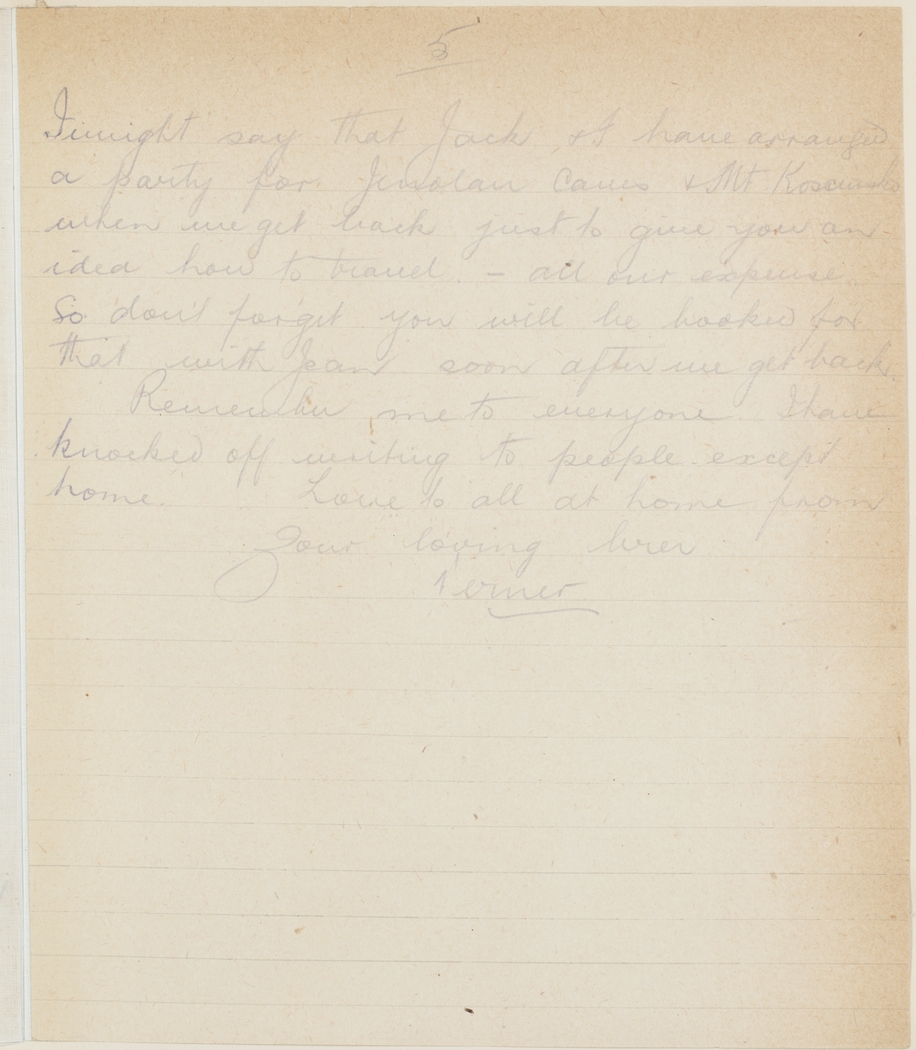 5
I might say that Jack & I have arranged
a party for Jenolan Caves & Mt Kosciusko
when we get back just to give you an
idea how to travel – all our expense.
So don't forget you will be booked for
that with Jean soon after we get back.
Remember me to everyone. I have
knocked off writing to people except
home. Love to all at home from
Your loving brer
Verner